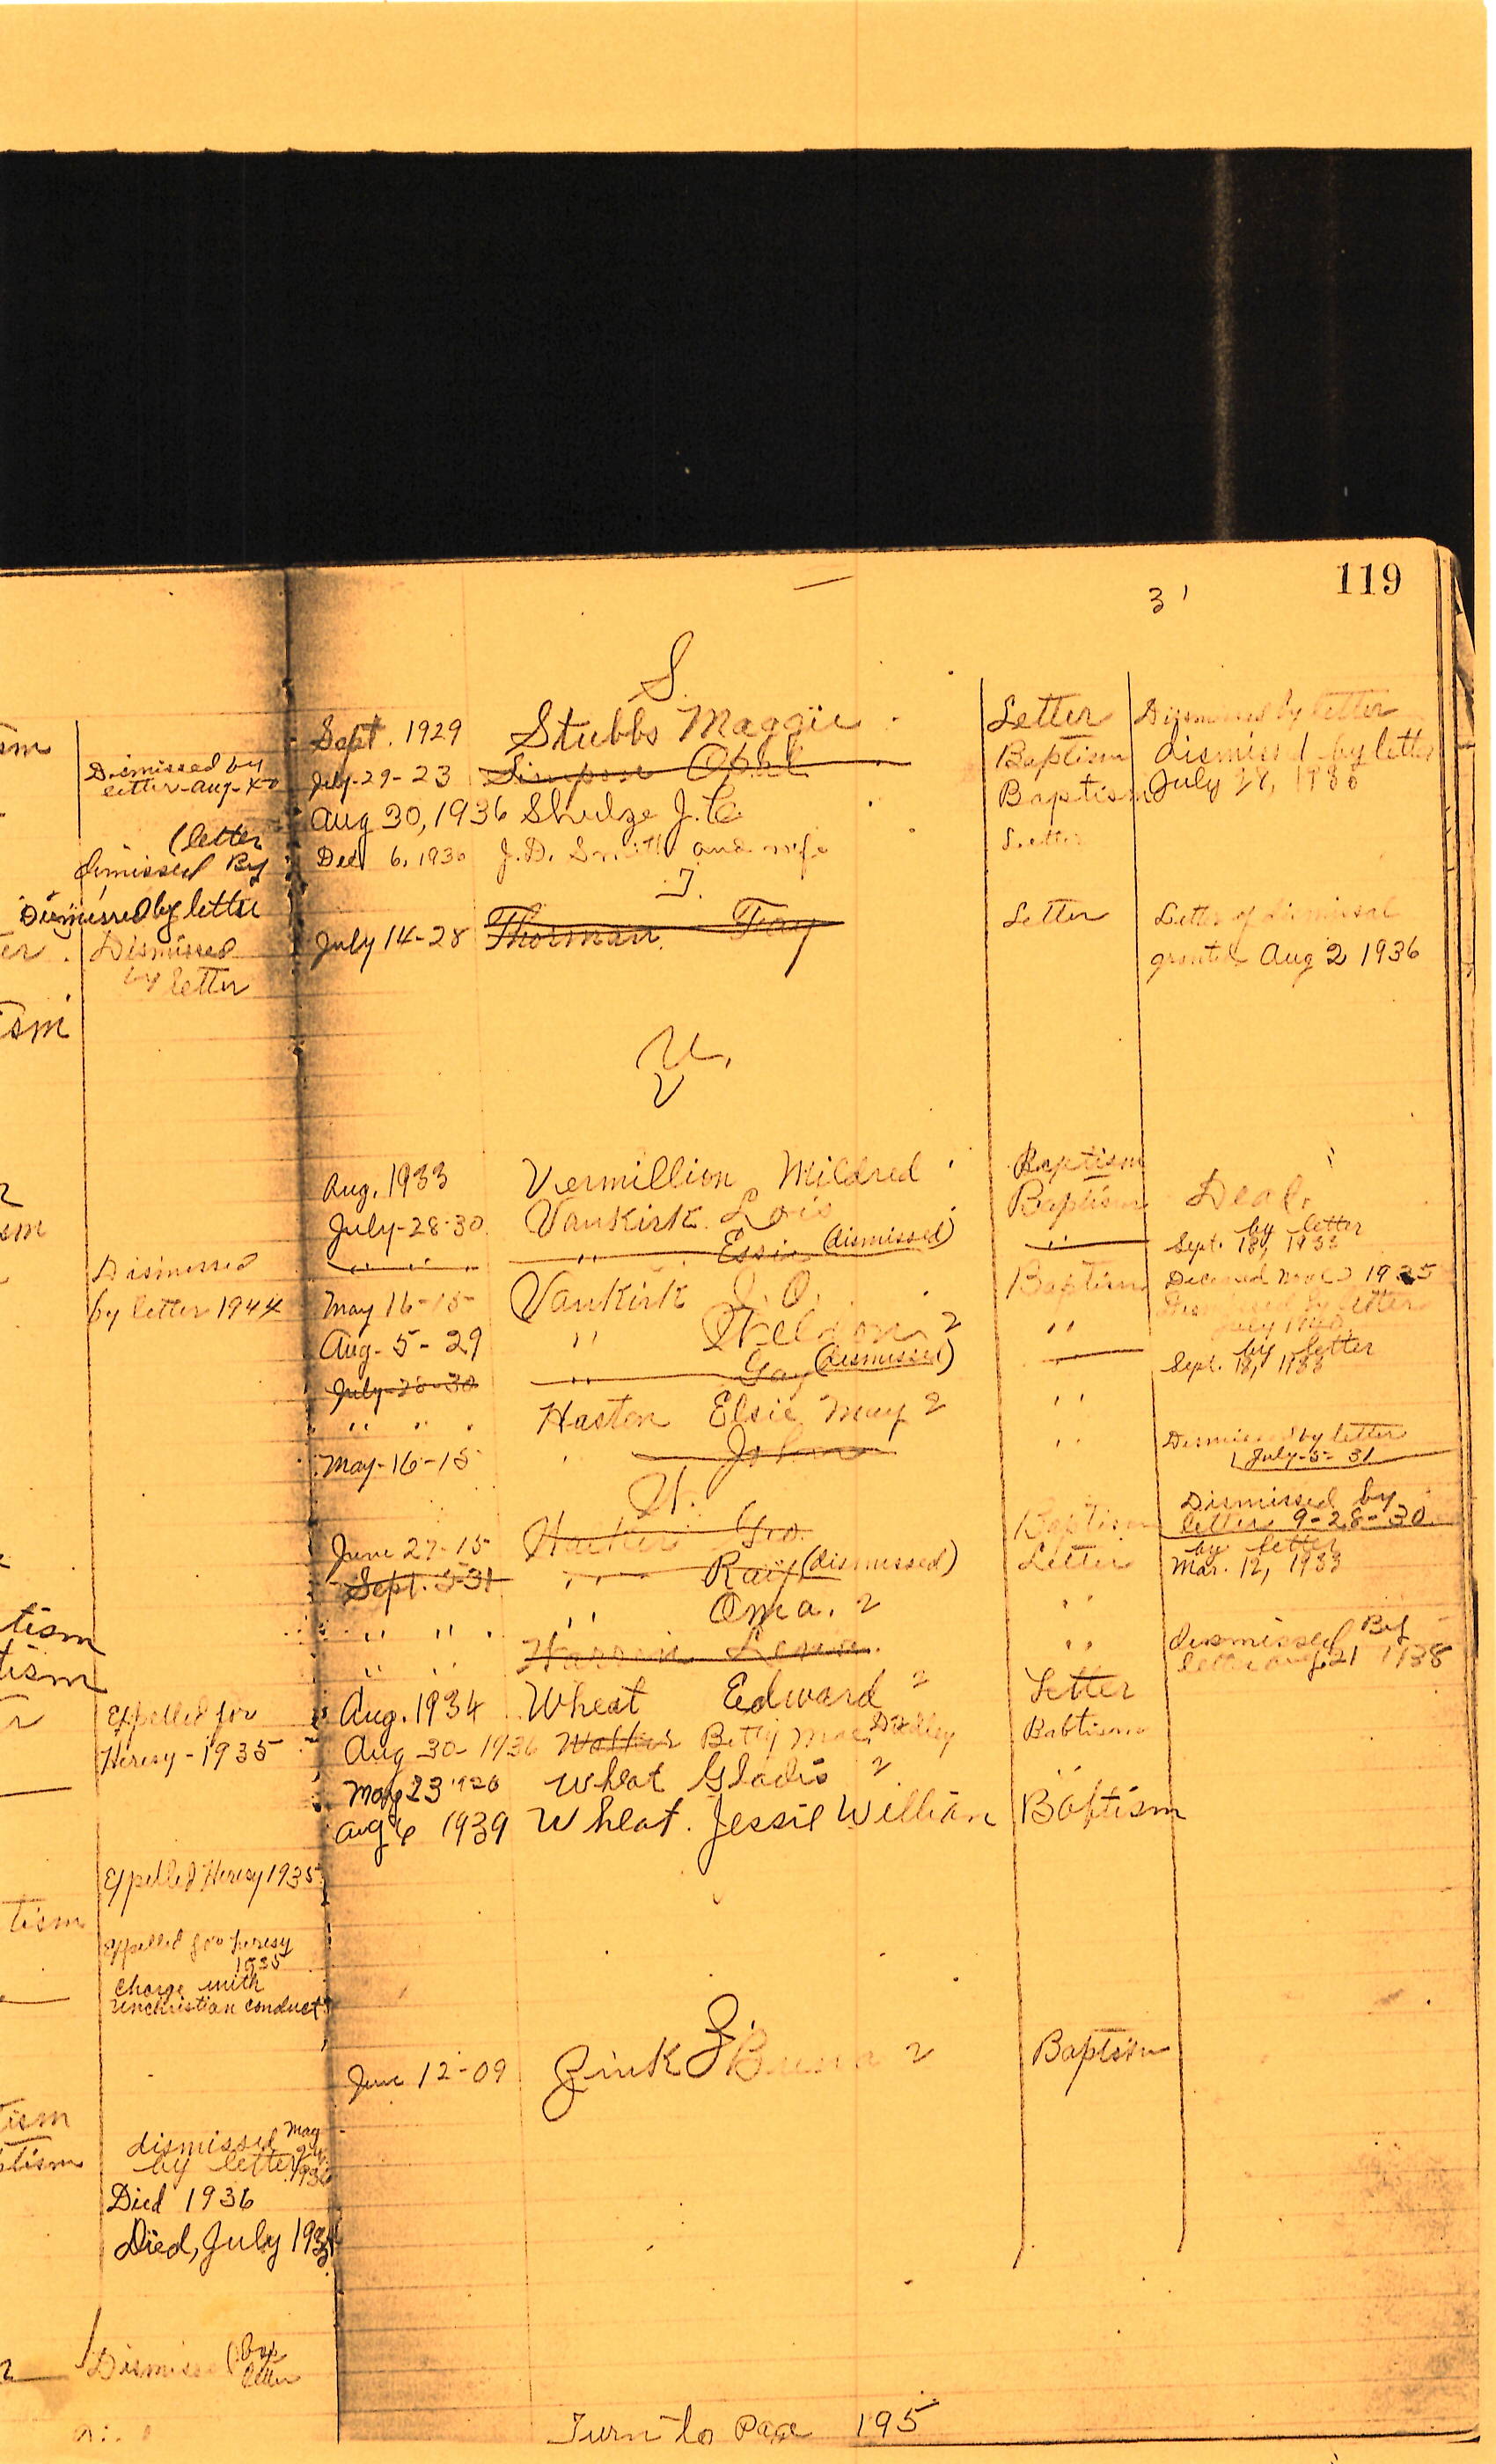 119
3 '
S.
Sept. 1929 Stubbs Maggie Letter Dismissed by letter
July-29-23 Opal Baptism dismissed by letter
Aug 30, 1936 Shulze J. C. Baptism July 28, 1936
Dec 6, 1930 J.D. Smith and wife Letter
T.
July 14-28 Thorman Fay Letter Letter of dismissal
granted Aug 2 1936
U,
V
Aug. 1933 Vermillion Mildred Baptism "
July-28-30 VanKirk Lois Baptism Dead.
" " " " Essie (dismissed) " by letter
Sept. 18, 1933
May 16-15 VanKirk J. O. Baptism Deceased 1935
Aug-5-29 " Sheldon 2 " Dismissed by letter
July 1940
July-28-30 " Gay (dismissed) by letter
Sept. 18, 1933
" " " Haston Elsie May 2 "
May-16-15 " John " Dismissed by letter
July-5-31
W.
June 27-15 Geo. Baptism Dismissed by
letter 9-28-30
Sept. 5-31 " Ray (dismissed) Letter by letter
Mar. 12, 1933
" " " " Oma. 2 "
" " " dismissed By
letter Aug. 21 1938
Aug. 1934 Wheat Edward 2 Letter
Aug 30-1936 Betty Mae Dudley Babtism
May 23 1920 Wheat Gladis 2 "
Aug 6 1939 Wheat. Jessie William Baptism
Z.
June 12-09 Zink 2 Baptism
Turn to Page 195
sm
Dismissed by
letter-Aug-40
(letter
dimissed By
Dismissed by letter
er. Dismissed
by letter
ism
sm
Dismissed
by letter 1944
tism
tism
r Expelled for
Heresy-1935
Expelled Heresy 1935
tism
Expelled for heresy
1935
Charge with
unchristian conduct
tism
ptism dismissed May
by letter 1936
Died 1936
Died, July
Dismissed (by
letter